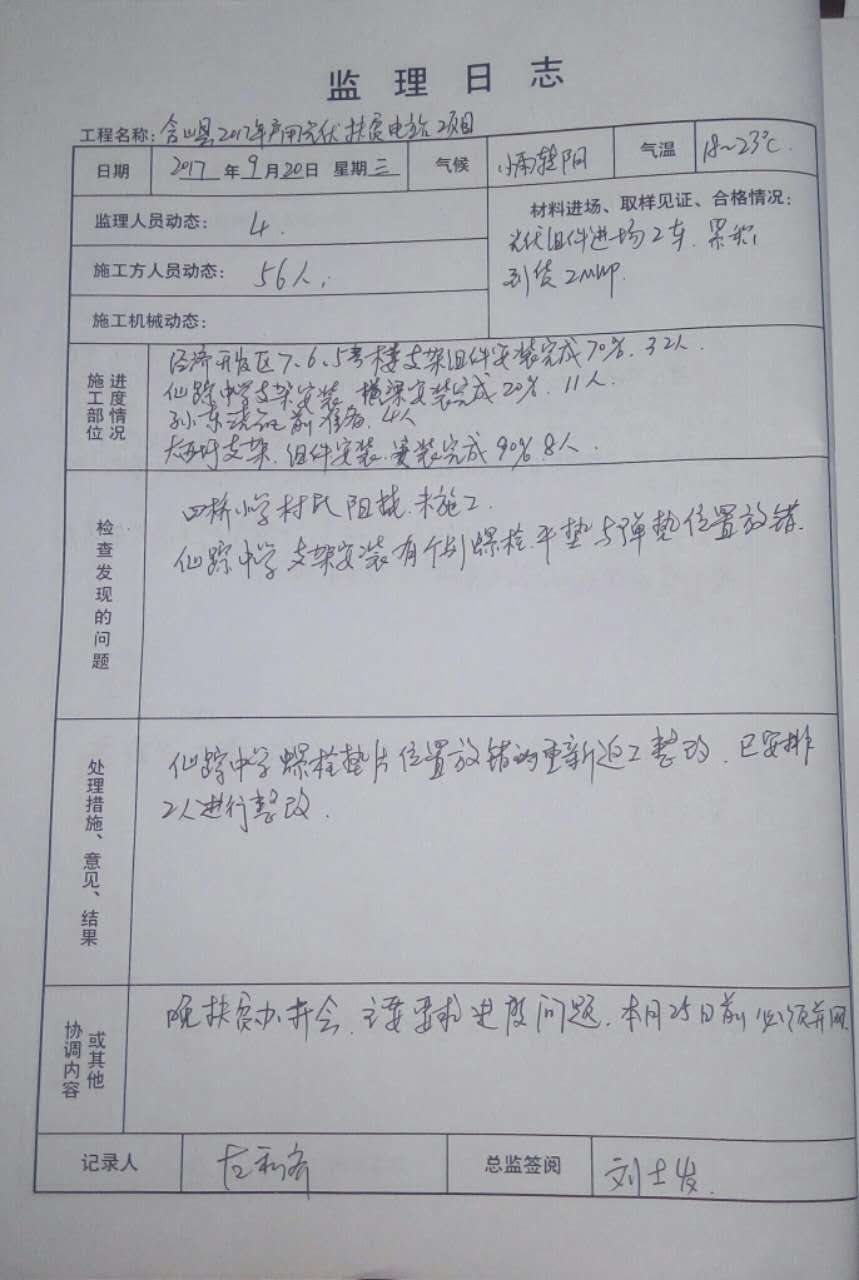 监理日志
工程名称：含山县2017年户用光伏扶贫电站项目
日期 2017年9月20日 星期三 气候 小雨转阴 气温 18~23℃.
监理人员动态： 4.
材料进场、取样见证、合格情况：
光伏组件进场2车. 累积
到货2MWP.
施工方人员动态： 56人.
施工机械动态：
施工部位 进度情况
经济开发区7、6、5号楼支架组件安装完成70%. 32人.
仙踪中学支架安装、横梁安装完成20%. 11人.
前准备. 4人
支架、组件安装. 安装完成90% 8人.
检查发现的问题
四桥小学村民阻挠. 未施工.
仙踪中学支架安装有个别螺栓. 平垫与弹垫位置放错.
处理措施、意见、结果
仙踪中学螺栓垫片位置放错的重新返工整改. 已安排
2人进行整改.
协调内容 或其他
晚扶贫办开会. 主要要求进度问题. 本月25日前必须并网
记录人 总监签阅 刘士发.